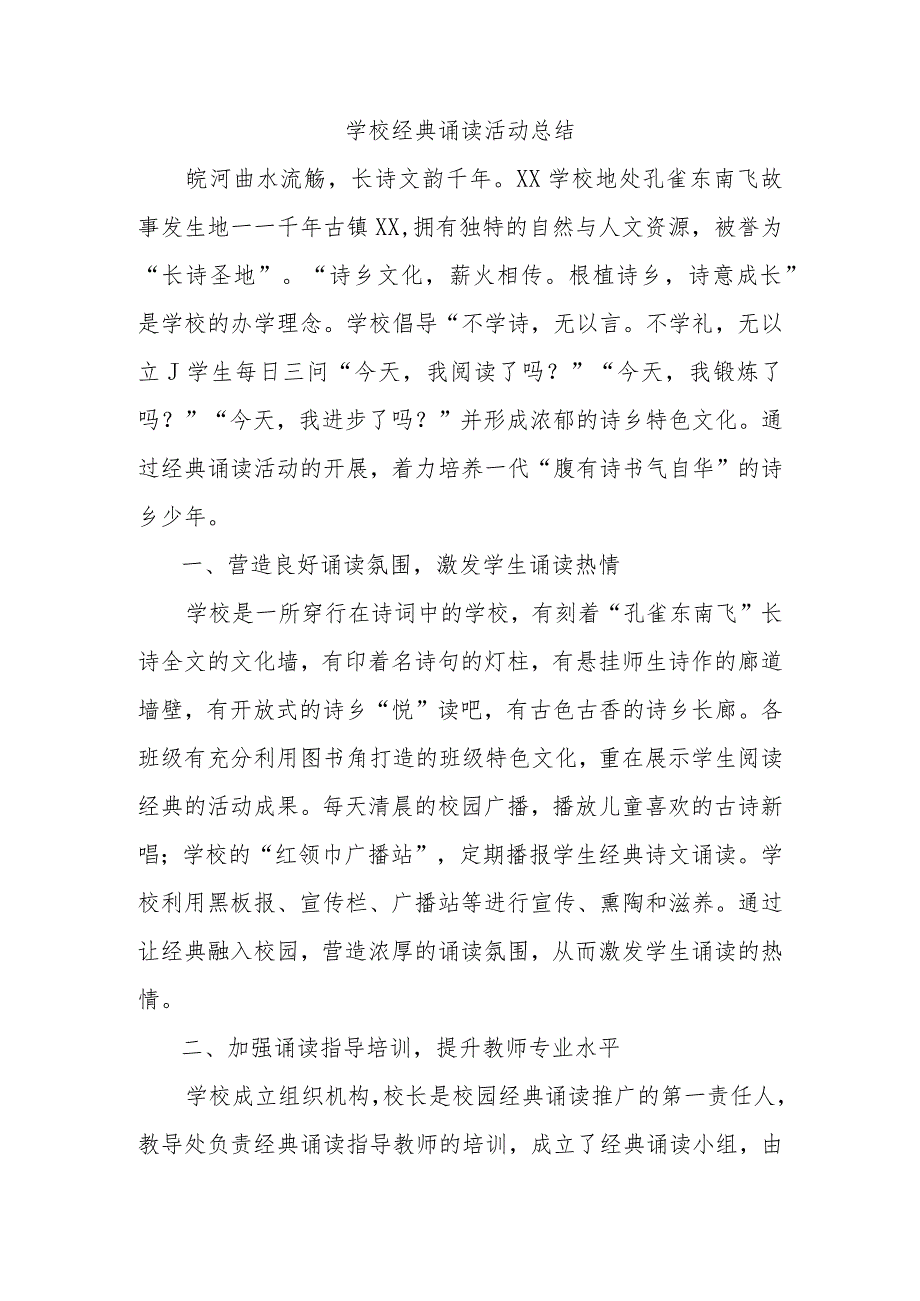 学校经典诵读活动总结
皖河曲水流觞，长诗文韵千年。XX学校地处孔雀东南飞故
事发生地一一千年古镇XX,拥有独特的自然与人文资源，被誉为
“长诗圣地”。“诗乡文化，薪火相传。根植诗乡，诗意成长”
是学校的办学理念。学校倡导“不学诗，无以言。不学礼，无以
立J学生每日三问“今天，我阅读了吗？”“今天，我锻炼了
吗？”“今天，我进步了吗？”并形成浓郁的诗乡特色文化。通
过经典诵读活动的开展，着力培养一代“腹有诗书气自华”的诗
乡少年。
一、营造良好诵读氛围，激发学生诵读热情
学校是一所穿行在诗词中的学校，有刻着“孔雀东南飞”长
诗全文的文化墙，有印着名诗句的灯柱，有悬挂师生诗作的廊道
墙壁，有开放式的诗乡“悦”读吧，有古色古香的诗乡长廊。各
班级有充分利用图书角打造的班级特色文化，重在展示学生阅读
经典的活动成果。每天清晨的校园广播，播放儿童喜欢的古诗新
唱；学校的“红领巾广播站”，定期播报学生经典诗文诵读。学
校利用黑板报、宣传栏、广播站等进行宣传、熏陶和滋养。通过
让经典融入校园，营造浓厚的诵读氛围，从而激发学生诵读的热
情。
二、加强诵读指导培训，提升教师专业水平
学校成立组织机构,校长是校园经典诵读推广的第一责任人，
教导处负责经典诵读指导教师的培训，成立了经典诵读小组，由